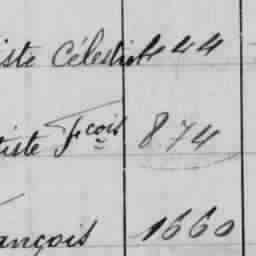 iste Célestin 444
tiste Fçois 874
ançois 1660